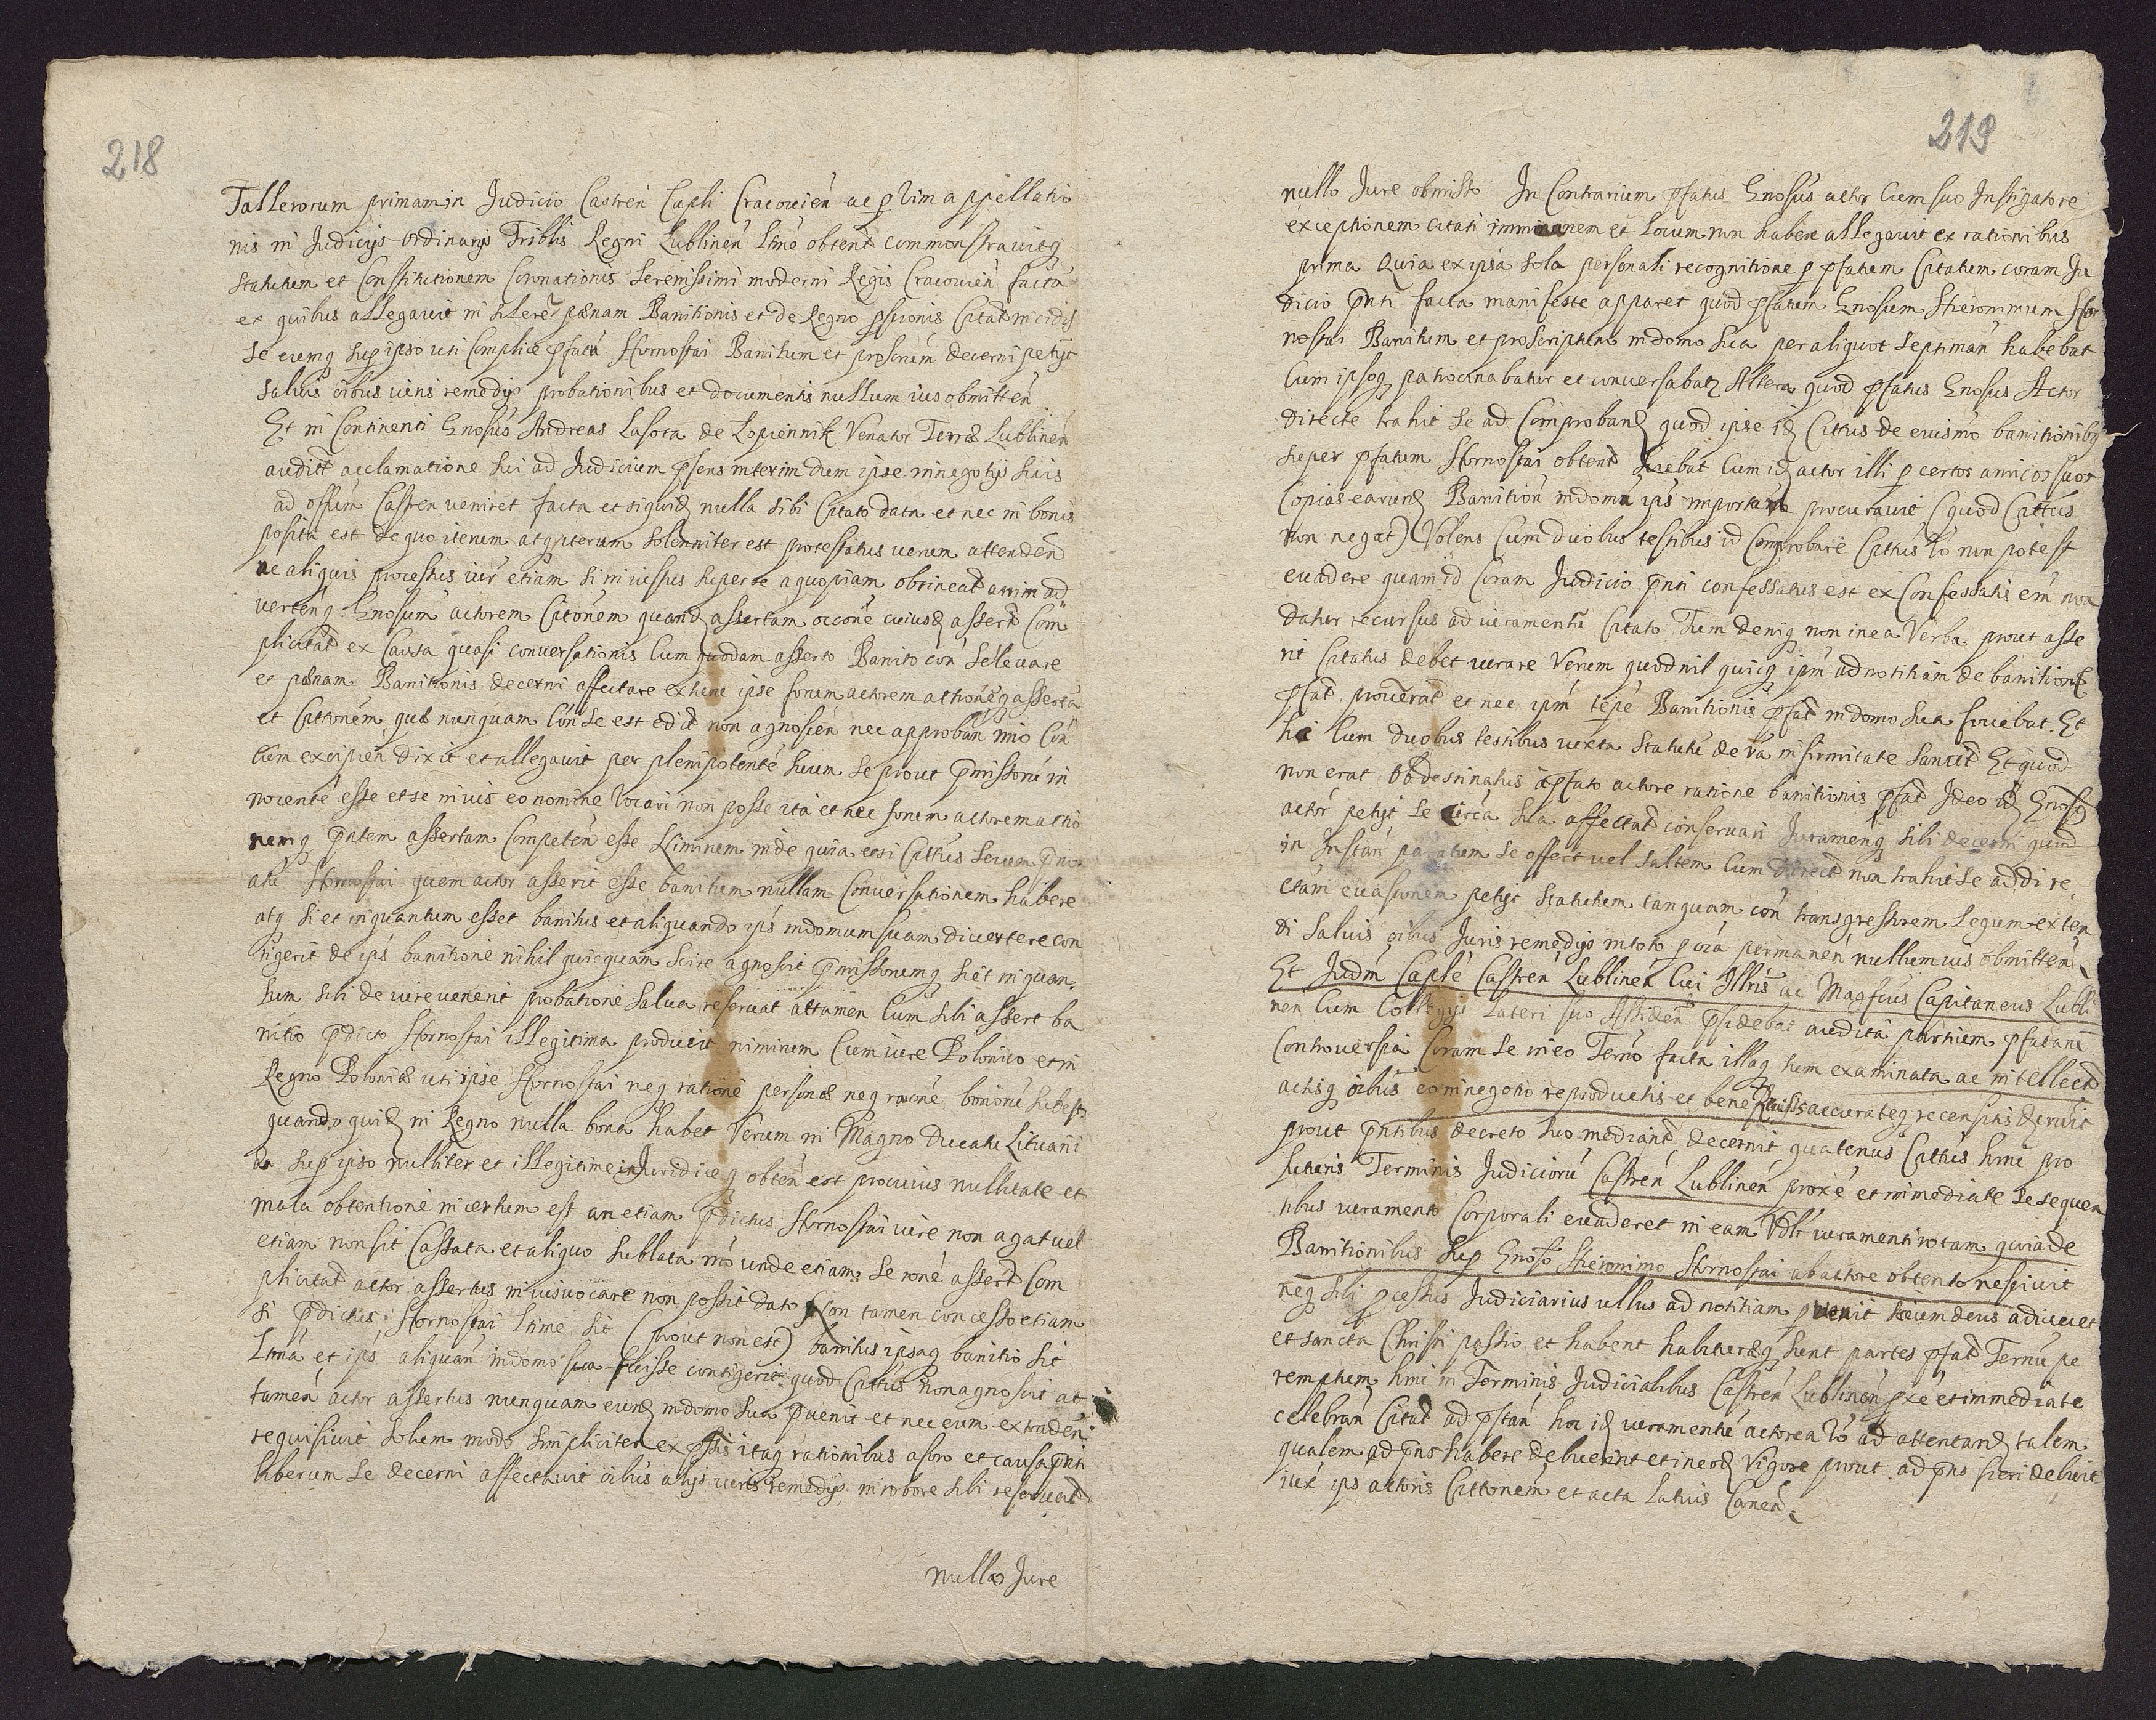 218
Tallerorum primam in Judicio Castren Capli Cracouien ac p Vim appellatio
nis in Judicijs Ordinarijs Triblis Regni Lublinen Ltime obtent commonstrauitq
statutum et Constitutionem Coronationis Serenissimi moderni Regis Cracouien facta
ex quibus allegauit in pænam Banitionis et de Regno pscionis Citat incidis
se eumq sup ipso uti Complice pfati Hornostai Banitum et proscriem decerni petijt
saluis oibus iuris remedijs probationibus et documentis nullum ius obmitten
Et in Continenti Gnosus Andreas Lasota de Lopiennik Venator Terræ Lublinen
audita acclamatione sui ad Judicium psens interim dum ipse in negotijs suis
ad offum Castren veniret facta et siquid nulla sibi Citato data et nec in bonis
posita est de quo iterum atq iterum solenniter est protestatus uerum attenden
ne aliquis processus iur etiam si iniustus super se a quopiam obtineat animad
vertenq Gnosum actorem Citonem quand assertam occone cuiusd assert Com
plicitat ex Causa quasi conuersationis Cum quodam asserto Banito con se leuare
et pænam Banitionis decerni affectare extunc ipse forum actorem actioneq asserta
et Cittonem quæ nunquam con se est edit non agnoscen nec approban imo Con
cum excipien dixit et allegauit per plenipotente suum se prout pmissoru in
nocente esse et se in ius eo nomine Vocari non posse ita et nec forum actorem actio
nemq pntem assertam Competen esse Niminum inde quia etsi Cittus secum pno
ato Hornostai quem actor asserit esse banitum nullam Conuersationem habere
atq si et inquantum esset banitus et aliquando ips in domum suam diuertere con
tigerit de ips banitione nihil quicquam scire agnoscit pmissorumq si et inquan
tum sibi de iure uenerit probatione salua reseruat attamen Cum sibi assert ba
nitio pdicto Hornostai illegitima producit niminum Cum iure Polonico et in
Regno Poloniæ uti ipse Hornostai neq ratione personæ neq raone bonoru subest
quando quid in Regno nulla bona habet Verum in Magno Ducatu Lituani
a sup ipso nulliter et illegitime inJuridiceq obten est pro cuius nullitate et
mala obtentione incertum est an etiam pdictus Hornostai iure non agat uel
etiam non sit Cassata et aliquo sublata mo unde etiam se rone assert Com
plicitat actor assertus in ius uocare non possit dato Non tamen concesso etiam
si pdictus Hornostai Ltime sit (prout non est) banitus ipsaq banitio sit
Ltma et ips aliquan in domo sua fuisse contigerit quod Cittus non agnoscit at
tamen actor assertus nunquam eund in domo sua puenit et nec eum extraden
requisiuit solum modo simpliciter ex pstis itaq rationibus a foro et causa pnti
liberum se decerni affectauit oibus alijs iuris remedijs in robore sibi reseruat
nullo Jure
219
nullo Jure obmisso In Contrarium pfatus Gnosus actor Cum suo Instigatore
exceptionem citati immunem et Locum non habere allegauit ex rationibus
prima Quia ex ipsa sola personali recognitione p pfatum Citatum coram Ju
dicio pnti facta manifeste apparet quod pfatum Gnosum Hieronimum Hor
nostai Banitum et proscriptum in domo sua per aliquot septiman habebat
Cum ipsoq patrocinabatur et conuersabatr Altera quod pfatus Gnosus Actor
directe trahit se ad Comproband quod ipse id Cittus de euismo banitionibq
super pfatum Hornostai obtent sciebat Cum id actor illi p certos amicos suos
Copias earund Banition in domu ips importare procurauit (quod Cittus
non negat) Volens Cum duobus testibus id Comprobare Cittus Vo non potest
euadere quam id Coram Judicio pnti confessatus est ex Confessatis em non
datur recursus ad iuramentu Citato Tum deniq non in ea Verba prout asse
rit Citatus debet iurare Verum quod nil quicq ipm ad notitiam de banitione
pfat prouerat et nec ipm tepe Banitionis pfat in domo sua fouebat Et
hoc Cum duobus testibus iuxta statutu de Va infirmitate sancit Et quod
non erat obdestinatus a pfato actore ratione banitionis pfat Ideo id Gnosus
actor petijt se circa sua affectat conseruari Juramenq sibi decerni quod
in Instan paratum se offert uel saltem Cum direct non trahit se ad dire
ctam euasionem petijt statutum tanquam con transgressorem Legum exten
di Saluis oibus Juris remedijs in toto p oia permanen nullum ius obmitten
Et Judm Caple Castren Lublinen Cui Illris ac Magfcus Capitaneus Lubli
nen Cum Collegijs Lateri suo Assiden psidebat audita partium pfatani
Controuersia Coram se in eo Terno facta illaq tum examinata ac intellect
actisq oibus eo in negotio reproductis et bene puisis accurateq recensitis decruit
prout pntibus decreto suo mediant decernit quatenus Cittus hmi pro
futuris Terminis Judicioru Castren Lublinen proxe et immediate se sequen
tibus iuramento Corporali euaderet in eam Vdlt iuramenti rotam quia de
Banitionibus Sup Gnoso Hieronimo Hornostai ab actore obtento nesciuit
neq sibi pcessus Judiciarius ullus ad notitiam puenit sicum deus adiuuet
et sancta Christi passio et habent habituræq sunt partes pfat Ternu pe
remptum hmi in Terminis Judicialibus Castren Lublinen pxe et immediate
celebran Citat ad pstan hoc id iuramentu actorea Vo ad attentand talem
qualem ad pns habere debuerint et in eod Vigore prout ad pns fieri debuit
iux ips actoris Cittonem et acta Latius Canen